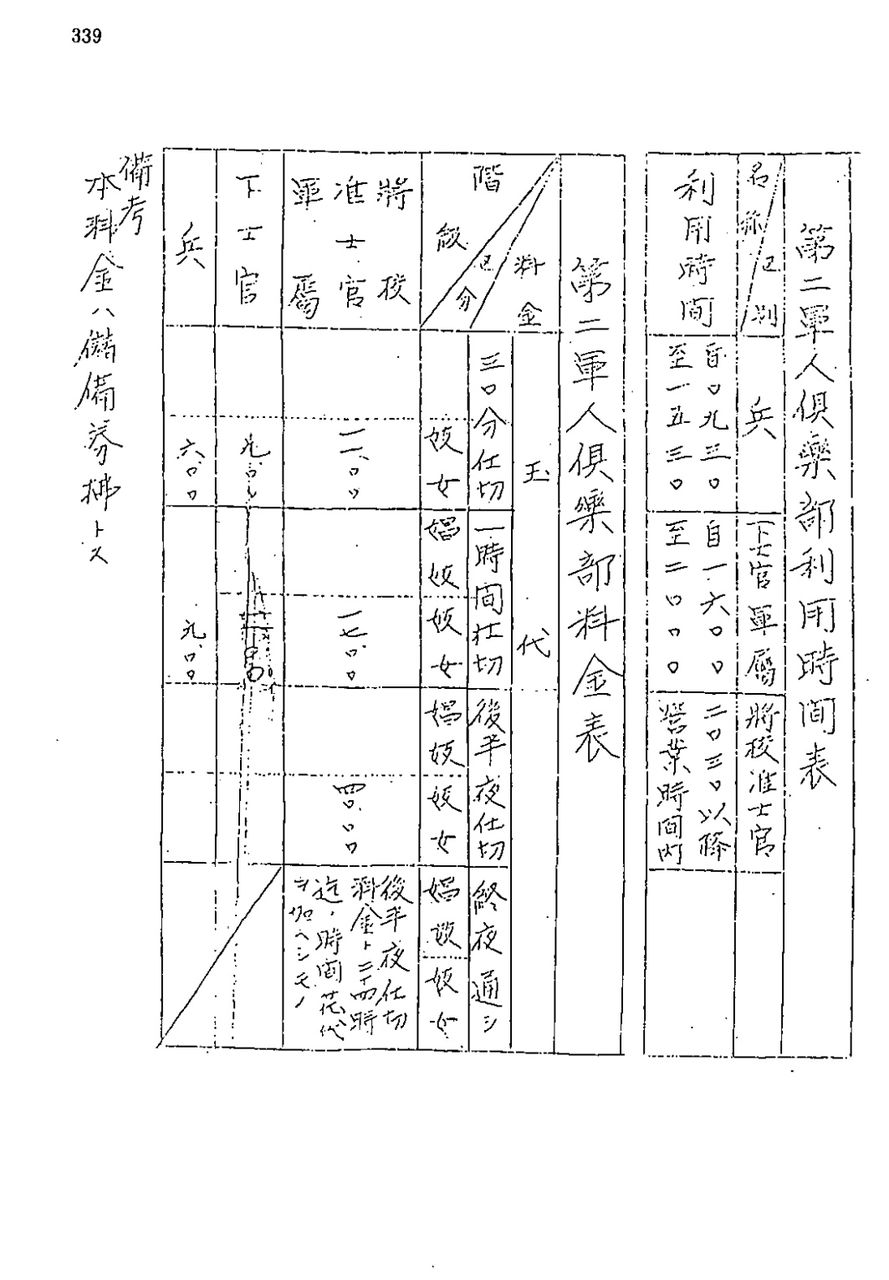 339
第二軍人倶樂部利用時間表
名称区別
兵
下士官軍屬
將校准士官
利用時間
自〇九三〇
至一五三〇
自一六〇〇
至二〇〇〇
二〇三〇以降
営業時間内
第二軍人倶樂部料金表
料金
区分
階級
玉代
三〇分仕切
一時間仕切
後半夜仕切
終夜通シ
妓女
娼妓
妓女
娼妓
妓女
娼妓
妓女
將校
准士官
軍屬
一一.〇〇
一七.〇〇
四〇.〇〇
後半夜仕切
料金ト二十四時
迄ノ時間花代
ヲ加ヘシモノ
下士官
九.〇〇
兵
六.〇〇
九.〇〇
備考
本料金ハ儲備券拂トス